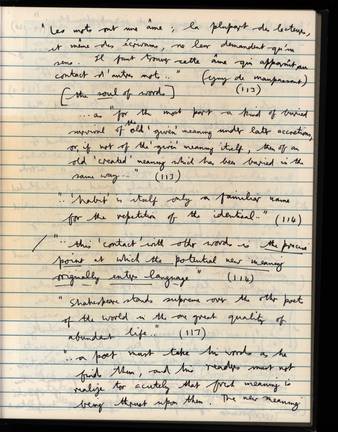 "Les mots ont une âme ; la plupart des lecteurs,
et même des écrivains, ne leur demandent qu'un
sens. Il faut trouver cette âme qui apparaît au
contact d'autres mots.." (Guy de Maupassant)
[the soul of words] (113)
...as "for the most part a kind of buried
survival of the old 'given' meaning under later accretions,
or, if not of the 'given' meaning itself, then of an
old 'created' meaning which has been buried in the
same way.." (113)
"..'habit' is itself only a familiar name
for the repetition of the identical.." (116)
"..this 'contact' with other words is the precise
point at which the potential new meaning
originally enters language" (116)
"Shakespeare stands supreme over the other poets
of the world in the one great quality of
abundant life.." (117)
"...a poet must take his words as he
finds them, and his readers must not
realize too acutely that fresh meaning is
being thrust upon them. The new meaning